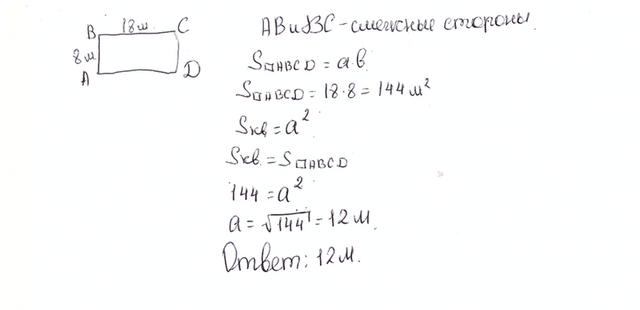 B 18м. C
8м
A D
AB и BC - смежные стороны.
S□ABCD = a·b
S□ABCD = 18·8 = 144 м²
Sкв = a²
Sкв. = S□ABCD
144 = a²
a = √144 = 12 м.
Ответ: 12 м.